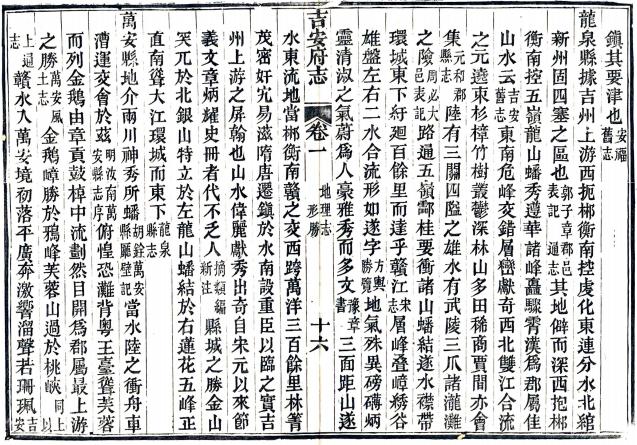 鎮其要津也安福舊志
龍泉縣據吉州上游西扼郴衡南控虔化東連分水北綰
新州固四塞之區也郭子章郡邑表記通志其地僻而深西抱郴
衡南控五嶺龍山蟠秀遵華諸峰矗驟霄漢爲郡屬佳
山水云吉安舊志東南危峰交錯層巒獻奇西北雙江合流
之元遶東杉樟竹樹叢鬱深林山多田稀商賈間亦會
集元和郡縣志陸有三關四隘之雄水有武陵三爪諸瀧灘
之險周必大表記路通五嶺酃桂要衝諸山蟠結遂水襟帶
環城東下紆廻百餘里而達乎贛江宋志層峰叠嶂綉谷
雄盤左右二水合流形如遂字方輿勝覽地氣殊異磅礴炳
靈清淑之氣蔚爲人豪雅秀而多文豫章書三面距山遂
吉安府志 卷一 地理志 形勝 十六
水東流地當郴衡南贛之交西跨萬洋三百餘里林菁
茂密奸宄易滋隋唐遷鎮於水南設重臣以臨之實吉
州上游之屏翰也山水偉麗獻秀出奇自宋元以來節
義文章炳耀史冊者代不乏人摘類編新注縣城之勝金山
突兀於北銀山特立於左龍山蟠結於右蓮花五峰正
直南聳大江環城而東下龍泉縣志
萬安縣地介兩川神秀所蟠胡銓萬安縣廳壁記當水陸之衝舟車
漕運交會於茲明汝南萬安縣志序俯惶恐灘背粵王臺聳芙蓉
而列金鵝由章貢鼓棹中流劃然目開爲郡屬最上游
之勝萬安風土志金鵝嶂勝於鴉峰芙蓉山過於桃峽同上以
上通志贛水入萬安境初落平廣奔激響溜聲若珊珮吉安